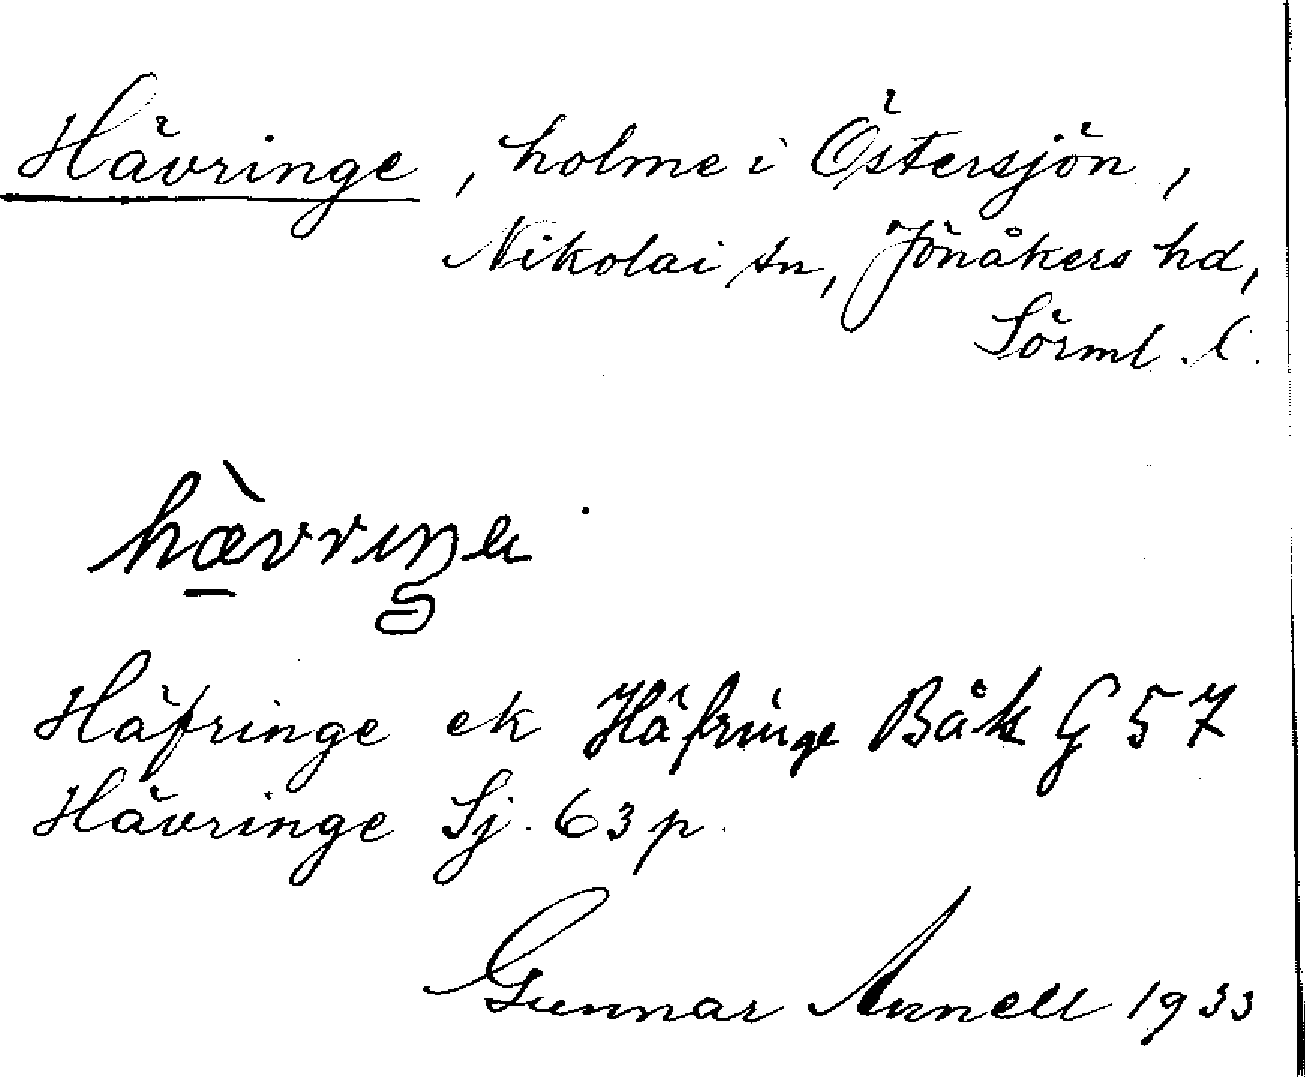 Hävringe, holme i Östersjön,
Nikolai sn, Jönåkers hd,
Sörml. l.
hæ̀vrıŋe
Häfringe ek Häfringe Båk G 57
Hävringe Sj. 63 p.
Gunnar Annell 1933